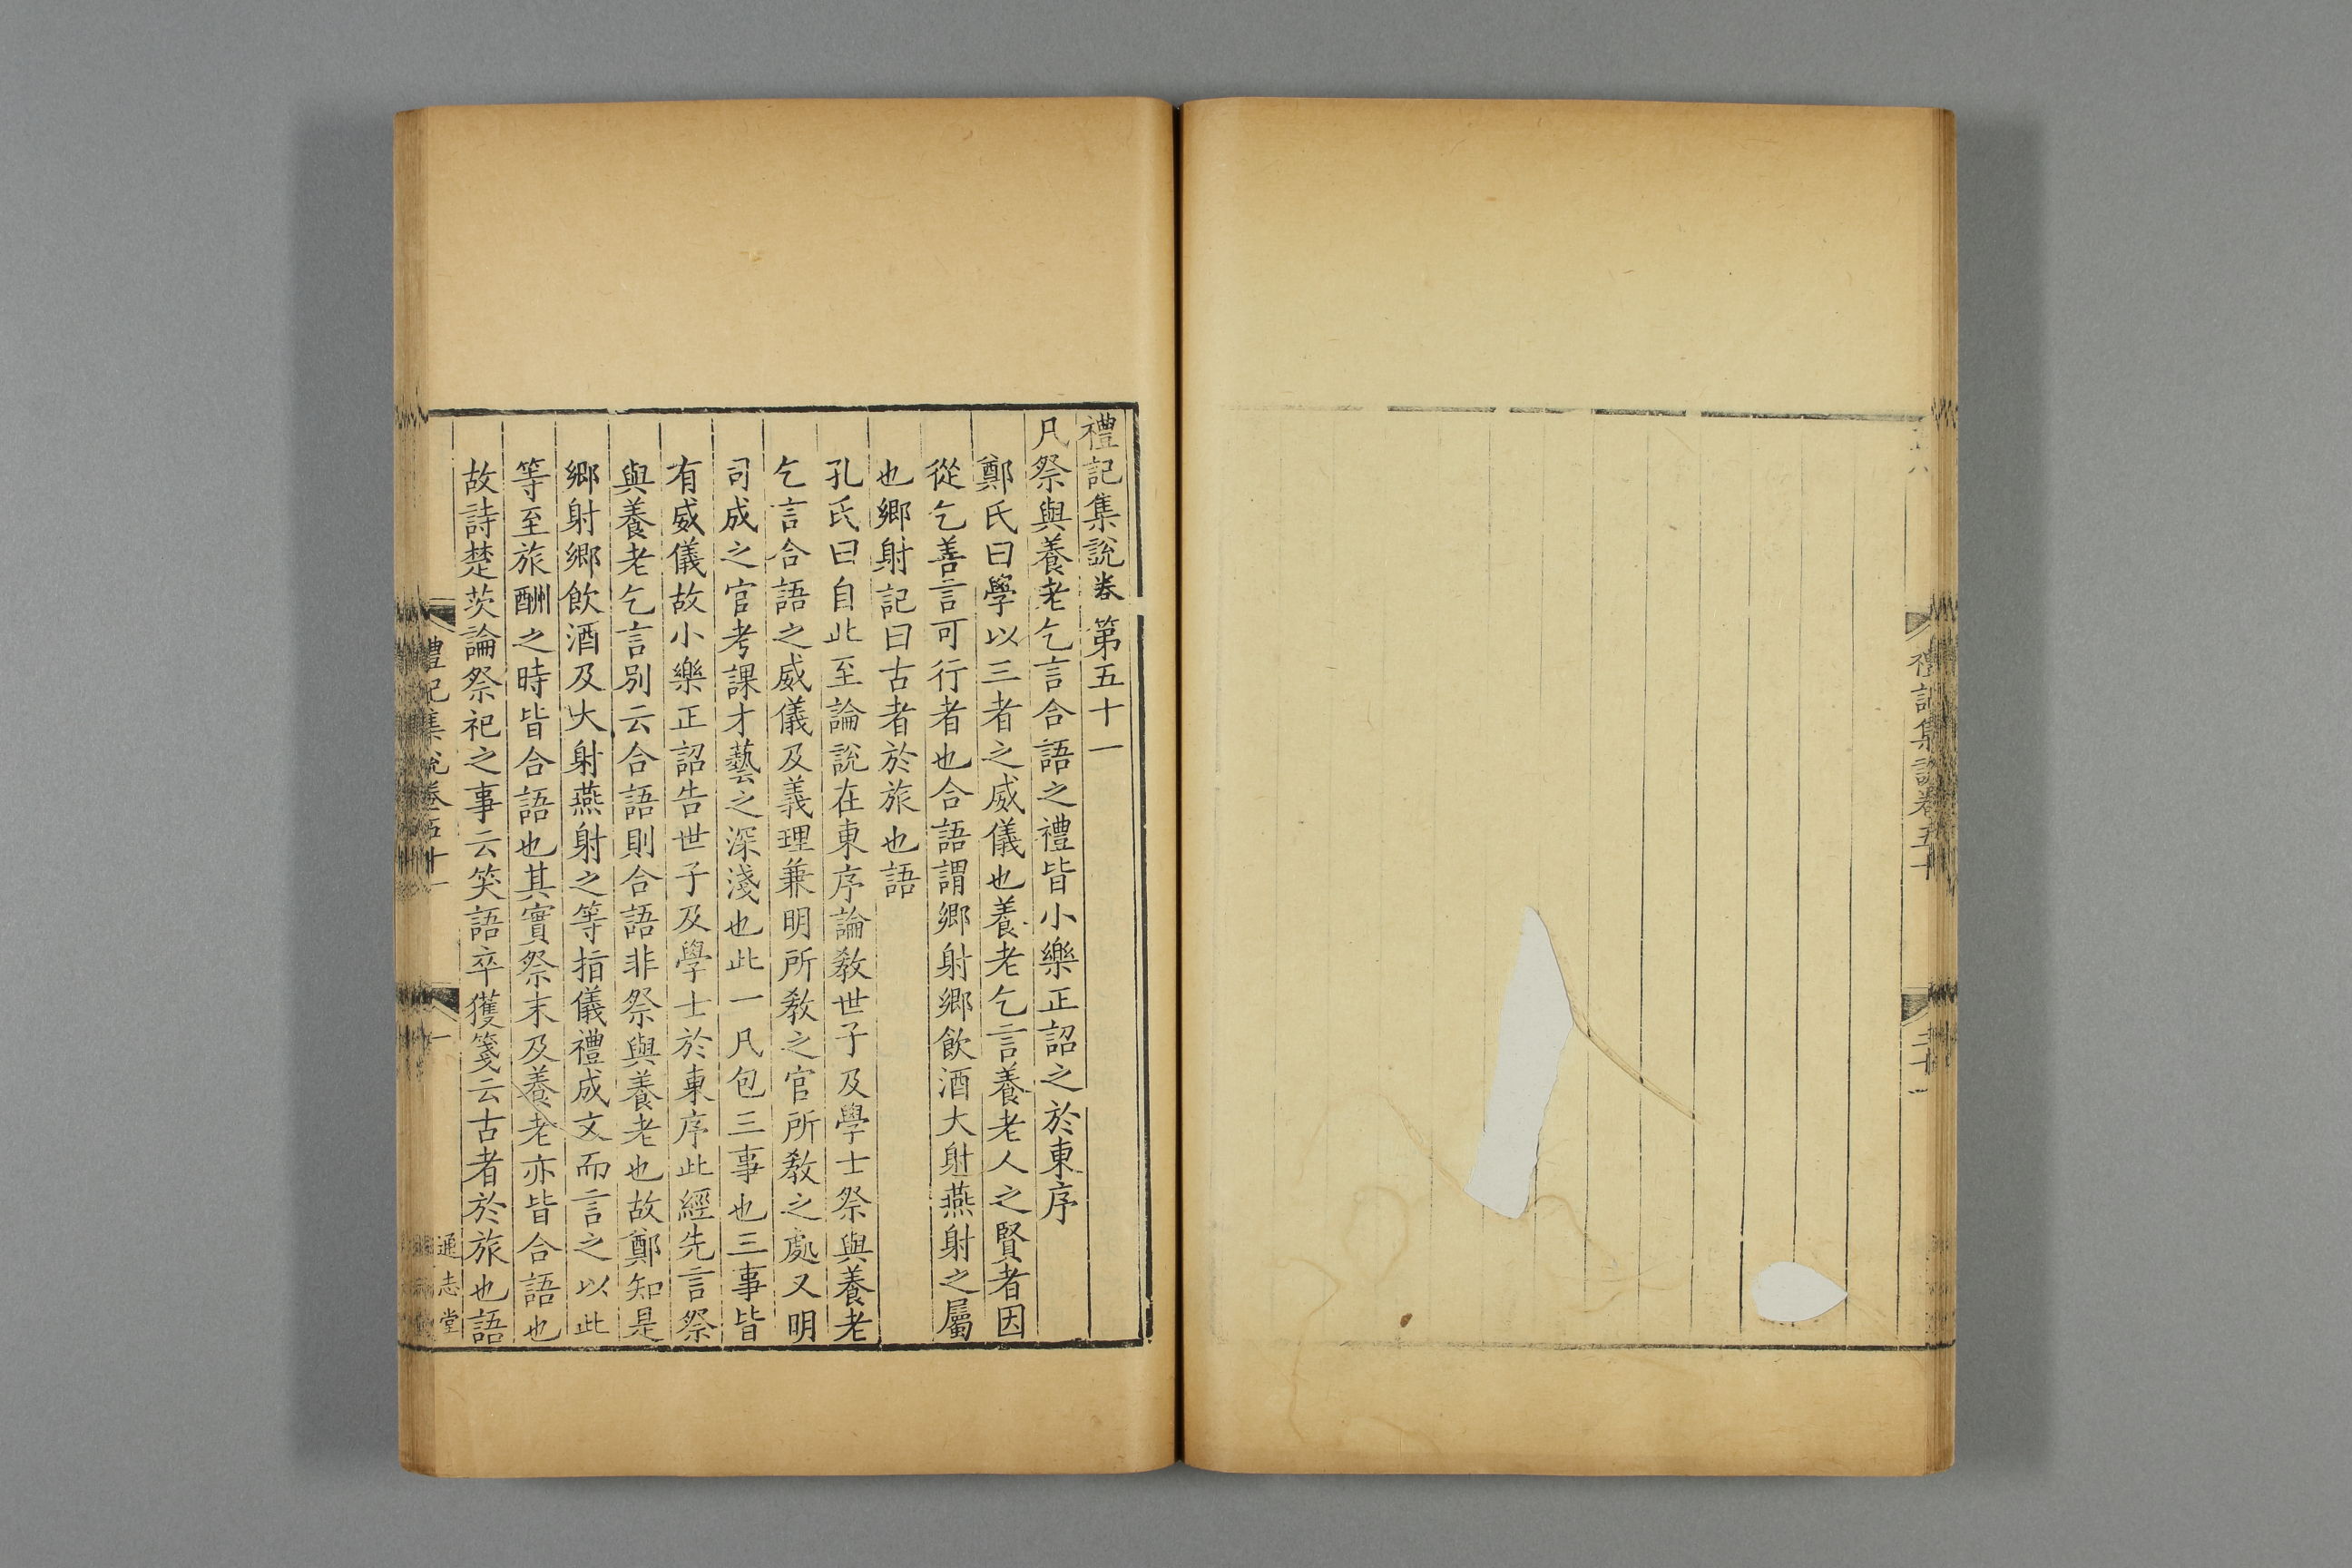 禮記集說卷五十
三十一
禮記集說卷第五十一
凡祭與養老乞言合語之禮皆小樂正詔之於東序
鄭氏曰學以三者之威儀也養老乞言養老人之賢者因
從乞善言可行者也合語謂鄉射鄉飲酒大射燕射之屬
也鄉射記曰古者於旅也語
孔氏曰自此至論說在東序論敎世子及學士祭與養老
乞言合語之威儀及義理兼明所敎之官所敎之處又明
司成之官考課才藝之深淺也此一凡包三事也三事皆
有威儀故小樂正詔告世子及學士於東序此經先言祭
與養老乞言別云合語則合語非祭與養老也故鄭知是
鄉射鄉飲酒及大射燕射之等指儀禮成文而言之以此
等至旅酬之時皆合語也其實祭末及養老亦皆合語也
故詩楚茨論祭祀之事云笑語卒獲箋云古者於旅也語
禮記集說卷五十一
一
通志堂